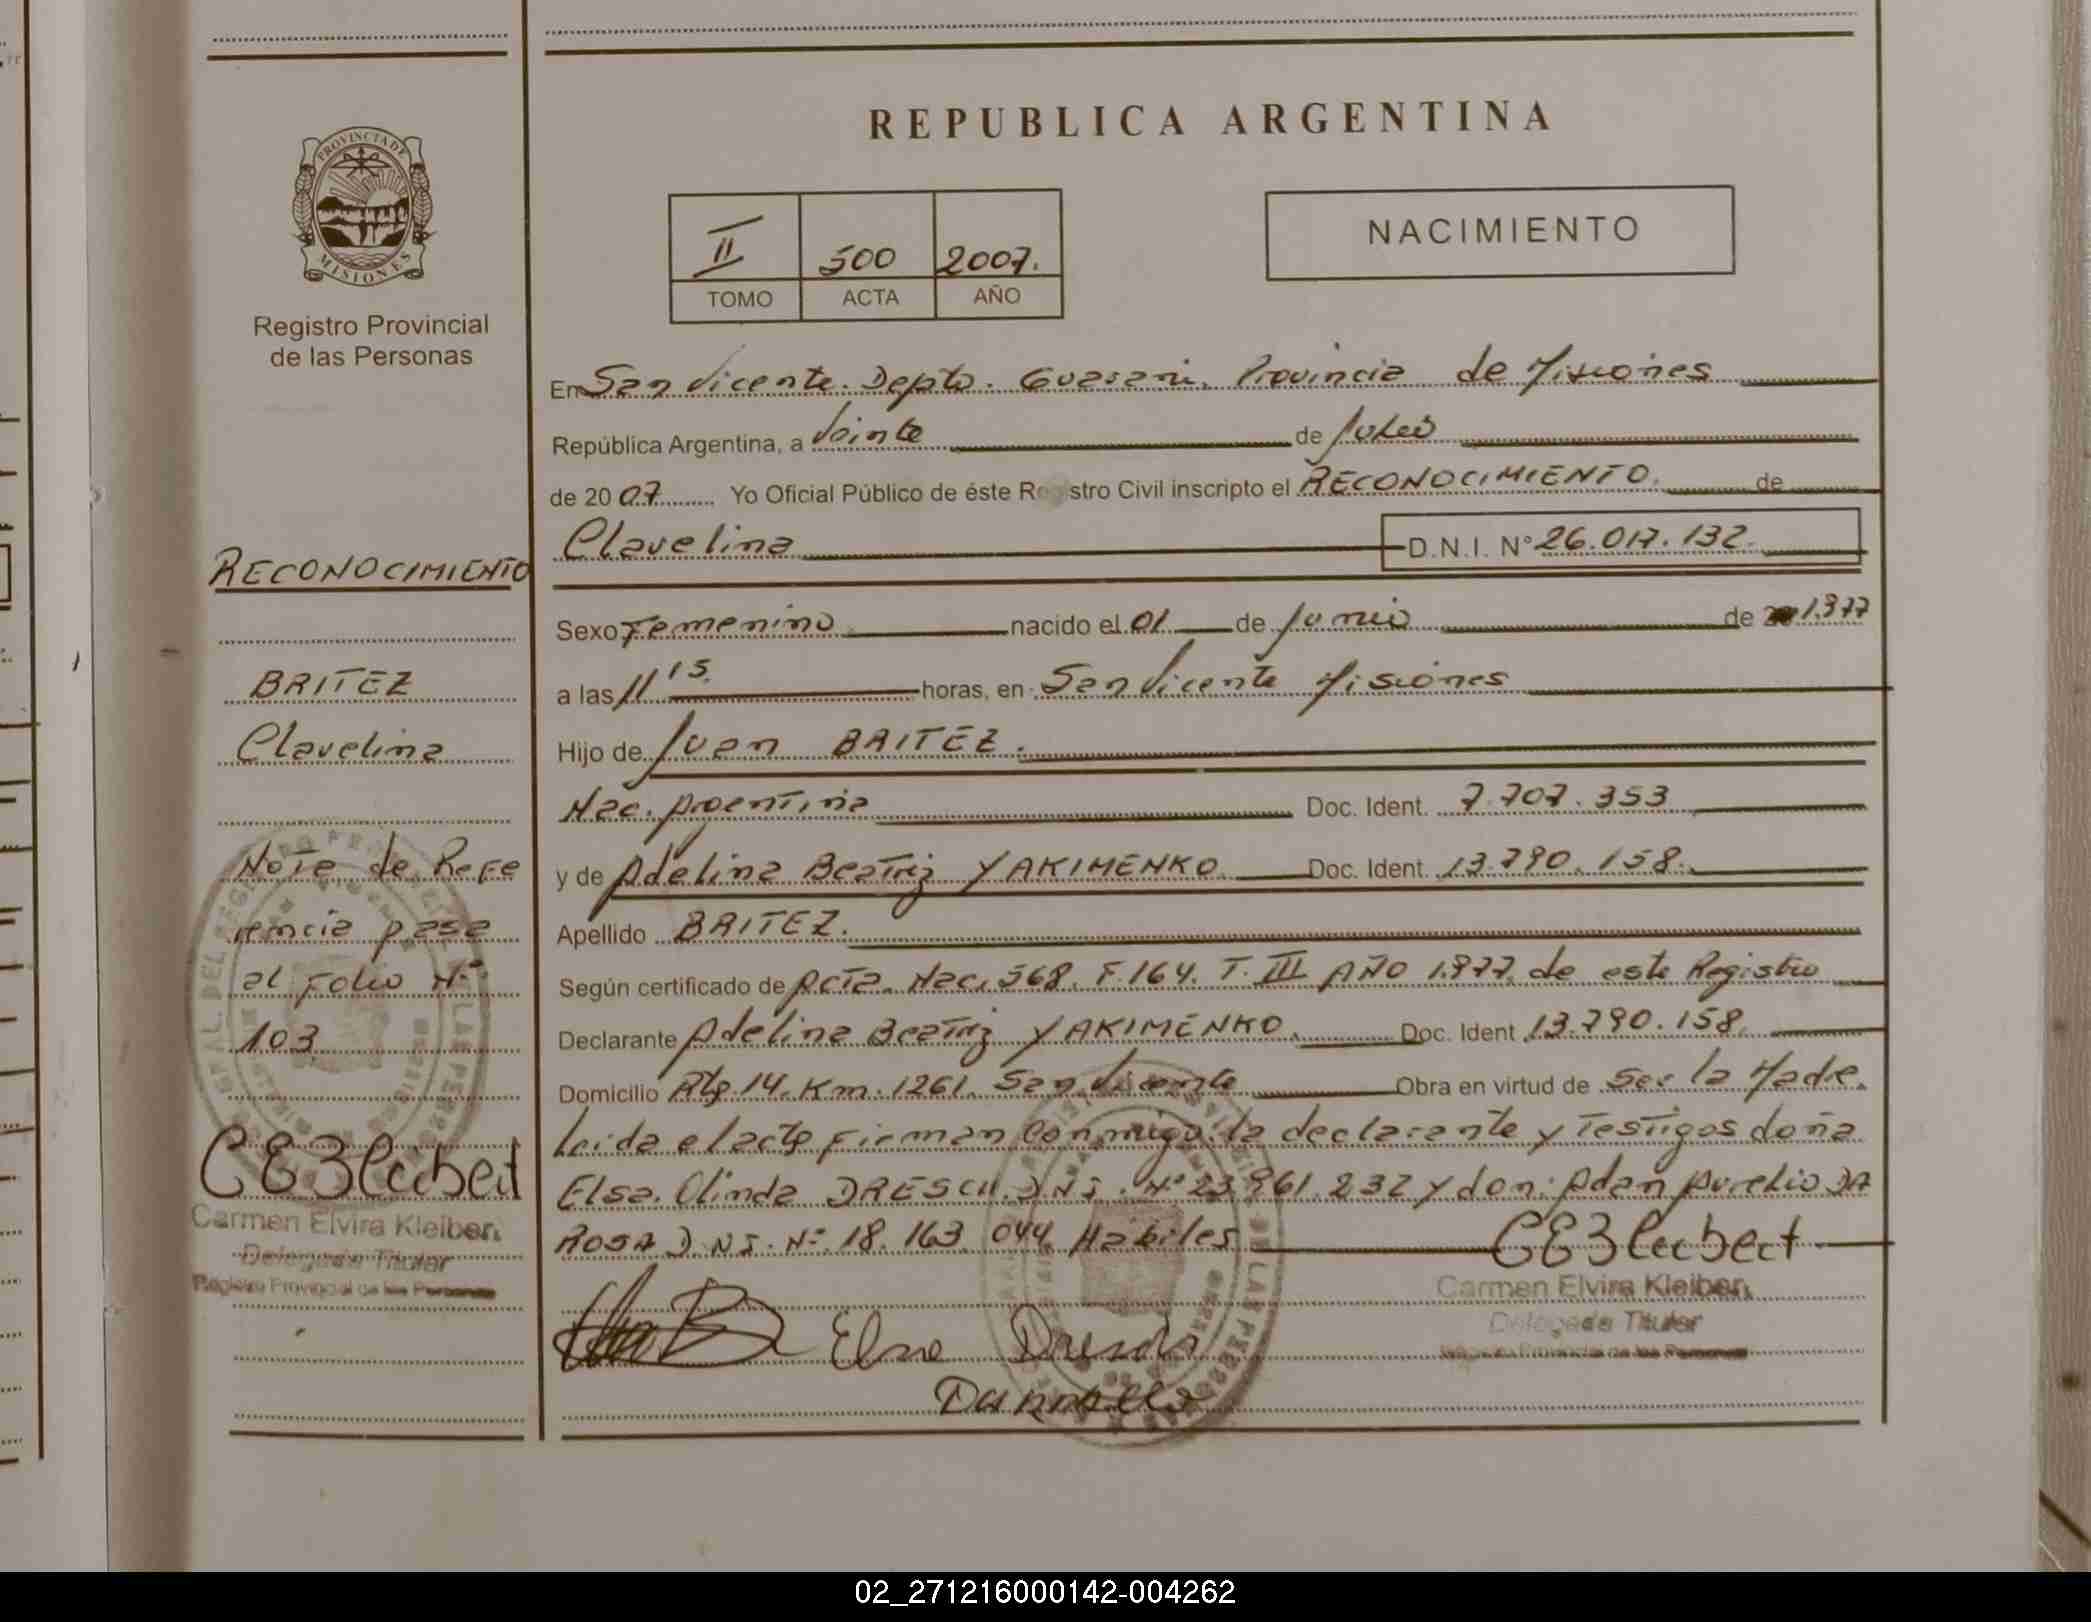 REPUBLICA ARGENTINA
PROVINCIA DE
MISIONES
Registro Provincial
de las Personas
II 500 2007.
TOMO ACTA AÑO
NACIMIENTO
RECONOCIMIENTO
BRITEZ
Clavelina
Nota de Refe
rencia pasa
al Folio Nº
103
Carmen Elvira Kleiber
Delegada Titular
Registro Provincial de las Personas
En San Vicente. Depto. Guarani, Provincia de Misiones
República Argentina, a Veinte de Julio
de 2007 Yo Oficial Público de éste Registro Civil inscripto el RECONOCIMIENTO. de
Clavelina D.N.I. N° 26.017.132.
Sexo Femenino nacido el 01 de Junio de 1.977
a las 11 15. horas, en San Vicente Misiones
Hijo de Juan BRITEZ.
Nac. Argentina Doc. Ident. 7.707.353
y de Adelina Beatriz YAKIMENKO Doc. Ident. 13.790.158.
Apellido BRITEZ.
Según certificado de Acta. Nac. 568. F.164. T. III AÑO 1.977. de este Registro
Declarante Adelina Beatriz YAKIMENKO. Doc. Ident 13.790.158
Domicilio Rta. 14. Km. 1261. San Vicente Obra en virtud de Ser la Madre.
Leida el acta firman conmigo la declarante y Testigos doña
Elsa. Olinda DRESCH. D.N.I. Nº 23.961.232 y don: Adan Aurelio DA
ROSA D.N.I. Nº 18.163.044 Habiles
Elsa Dresch
Carmen Elvira Kleiber
Delegada Titular
Registro Provincial de las Personas
02_271216000142-004262